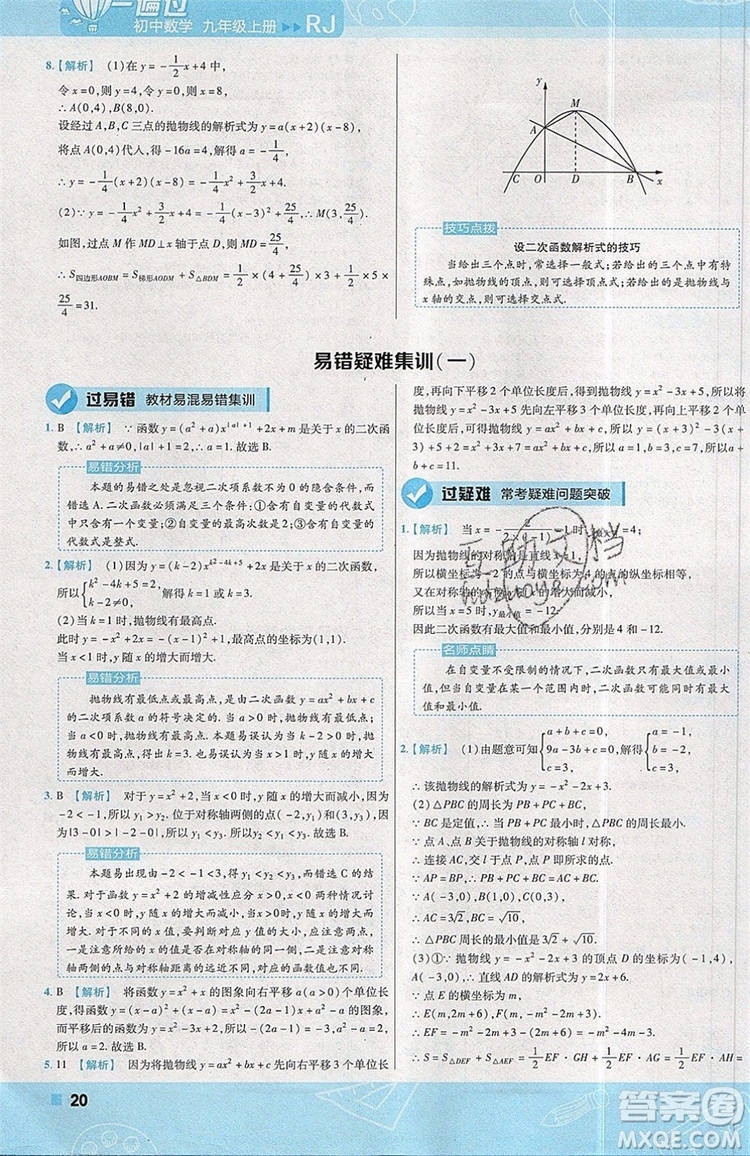 一遍过
初中数学 九年级上册 ▶▶ RJ
8.【解析】 (1)在 y=-1/2x+4 中,
令 x=0,则 y=4,令 y=0,则 x=8,
∴A(0,4),B(8,0).
设经过 A,B,C 三点的抛物线的解析式为 y=a(x+2)(x-8),
将点 A(0,4)代入,得-16a=4,解得 a=-1/4,
∴y=-1/4(x+2)(x-8)=-1/4x²+3/2x+4.
(2)∵y=-1/4x²+3/2x+4=-1/4(x-3)²+25/4,∴M(3,25/4).
如图,过点 M 作 MD⊥x 轴于点 D,则 OD=3,BD=5,MD=
25/4,∴S四边形AOBM=S梯形AODM+S△BDM=1/2×(4+25/4)×3+1/2×5×
25/4=31.
y
M
A
C O D B x
技巧点拨
设二次函数解析式的技巧
当给出三个点时,常选择一般式;若给出的三个点中有特
殊点,如抛物线的顶点,则可选择顶点式;若给出抛物线与
x 轴的交点,则可选择交点式.
易错疑难集训(一)
过易错 教材易混易错集训
1. B 【解析】 ∵函数 y=(a²+a)x^(|a|+1)+2x+m 是关于 x 的二次函
数,∴a²+a≠0,|a|+1=2,∴a=1.故选 B.
易错分析
本题的易错之处是忽视二次项系数不为 0 的隐含条件,而
错选 A.二次函数必须满足三个条件:①含有自变量的代数式
中只含有一个自变量;②自变量的最高次数是 2;③含自变量的
代数式是整式.
2.【解析】 (1)因为 y=(k-2)x^(k²-4k+5)+2x 是关于 x 的二次函数,
(2)因为抛物线有最高点,
易错分析
抛物线有最低点或最高点,是由二次函数 y=ax²+bx+c
的二次项系数 a 的符号决定的.当 a>0 时,抛物线有最低点;当
a<0 时,抛物线有最高点.本题易误认为当 k-2>0 时,抛物线
有最高点,从而得出 k=3.也易误认为当 x>1 时,y 随 x 的增大
而增大.
3. B 【解析】 对于 y=x²+2,当 x<0 时,y 随 x 的增大而减小,因为
-2<-1,所以 y₁>y₂.比较位于对称轴两侧的点(-2,y₁)和(3,y₃),因
为|3-0|>|-2-0|,所以 y₃>y₁,所以 y₂<y₁<y₃.故选 B.
易错分析
本题易出现由-2<-1<3,得 y₁<y₂<y₃,而错选 C 的结
果.对于函数 y=x²+2 的增减性应分 x>0 和 x<0 两种情况讨
论,当 x>0 时,y 随 x 的增大而增大;当 x<0 时,y 随 x 的增大而
减小.对于不在对称轴同一侧的点,不能直接运用增减性,方法
一是先利用对称性将点转化到对称轴的同一侧;方法二是对称
轴两侧的点与对称轴距离越近,离顶点越近.
4. B 【解析】 将函数 y=x²+x 的图象向右平移 a(a>0)个单位长
度,得到函数 y=(x-a)²+(x-a)=x²-3x+2+a 的图象,
5. 11 【解析】 因为将抛物线 y=ax²+bx+c 先向右平移 3 个单位长
度,再向下平移 2 个单位长度后得到抛物线 y=x²-3x+5,所以将
抛物线 y=x²-3x+5 先向左平移 3 个单位长度,再向上平移 2 个单
位长度后可得到抛物线 y=ax²+bx+c,所以 y=(x+3)²-3(x+
3)+5+2=x²+3x+7,所以 a+b+c=11.
过疑难 常考疑难问题突破
因为抛物线的对称轴是直线 x=1,
因此二次函数有最大值和最小值,分别为 4 和 -12.
名师点睛
在自变量不受限制的情况下,二次函数只有最大值或最
小值,但当自变量在某一个范围内时,可能同时有最大值和
最小值.
2.【解析】 (1)由题意可知{a+b+c=0, 9a-3b+c=0, c=3,解得{a=-1, b=-2, c=3,
∴该抛物线的解析式为 y=-x²-2x+3.
(2)△PBC 的周长为 PB+PC+BC,
∵BC 是定值,∴当 PB+PC 最小时,△PBC 的周长最小.
∵点 A,点 B 关于抛物线的对称轴 l 对称,
∴连接 AC,交 l 于点 P,点 P 即为所求的点.
∵AP=BP,∴PB+PC+BC=AC+BC,
∵A(-3,0),B(1,0),C(0,3),
∴AC=3√2,BC=√10,
∴△PBC 周长的最小值是 3√2+√10.
(3)①∵抛物线 y=-x²-2x+3 的顶点 D 的坐标为(-1,4),
A(-3,0),∴直线 AD 的解析式为 y=2x+6.
∵点 E 的横坐标为 m,
∴E(m,2m+6),F(m,-m²-2m+3),
∴EF=-m²-2m+3-(2m+6)=-m²-4m-3,
∴S=S△DEF+S△AEF=1/2EF·GH+1/2EF·AG=1/2EF·AH=
20
答案圈
MXQE.COM